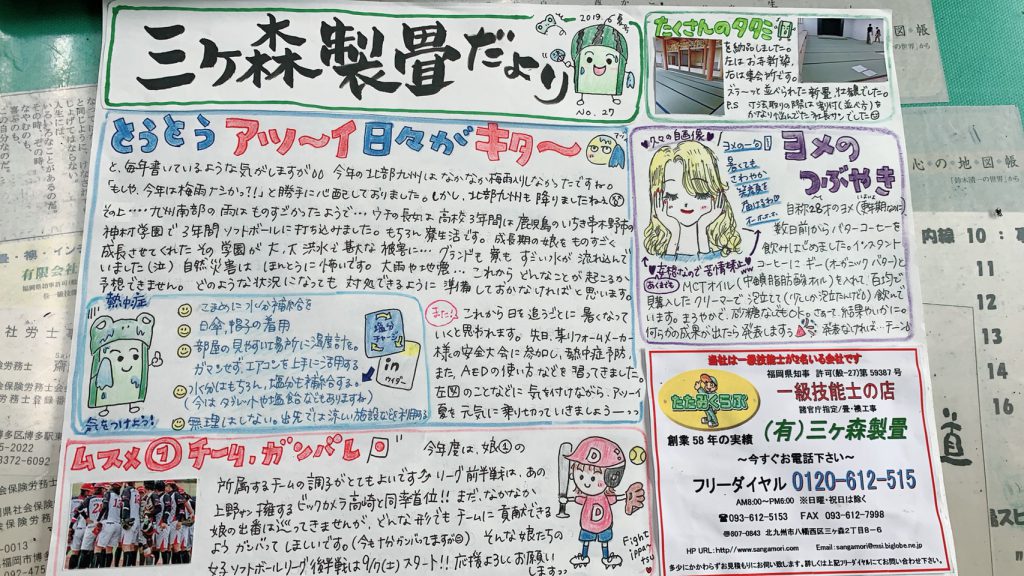 三ケ森製畳だより
2019.6 夏
No.27
たくさんのタタミ
を納品しました。
左はお寺新築、
右は集会所です。
ズラーっと並べられた新畳、壮観でした。
P.S 寸法取りの際は割付(並べ方)を
かなり悩んでた社長サンでした
とうとう アッ〜イ日々が キタ〜
と、毎年書いているような気がしますが 今年の北部九州はなかなか梅雨入りしなかったですね。
「もしや、今年は梅雨ナシかっ?!」と勝手に心配しておりました。しかし、北部九州も降りましたねぇ
その上….九州南部の雨はものすごかったようで… ウチの長女は高校3年間は鹿児島のいちき串木野市の
神村学園で3年間ソフトボールに打ち込みました。もちろん寮生活です。成長期の娘をものすごく
成長させてくれたその学園が大、大洪水で甚大な被害に… グランドも寮もすごい水が流れ込んで
いました(泣) 自然災害は ほんとうに怖いです。大雨や地震… これから どんなことが起こるか
予想できません。どのような状況になっても対処できるように準備しておかなければと思います。
熱中症
気をつけよう!
こまめに水分補給を
日傘、帽子の着用
部屋の見やすい場所に温度計を。
ガマンせず、エアコンを上手に活用する
水分はもちろん、塩分も補給する。
(今はタブレットや塩飴などもありますね)
無理はしない。出先では涼しい施設などを利用する
塩分
チャージ
in
ウイダー
また、これから日を追うごとに暑くなって
いくと思われます。先日、某リフォームメーカー
様の安全大会に参加し、熱中症予防、
また、AEDの使い方などを習ってきました。
左図のことなどに気をつけながら、アッ〜イ
夏を元気に乗り切っていきましょう〜
久々の自画像
ヨメの一句
暑くても
さわやか
ヨメの
つぶやき
自称28才のヨメ(更年期なのに)
数日前からバターコーヒーを
飲みはじめました。インスタント
コーヒーにギー(オーガニックバター)と
MCTオイル(中鎖脂肪酸オイル)を入れて、百均で
購入したクリーマーで泡立てて(久しか泡立たんけども)飲んで
います。まろやかで、お砂糖なしでもOK。さぁて、結果やいかに…
何らかの成果が出たら発表しまーす。発表なければ…チーン
妄想なので苦情禁止
あくまでも
ムスメ①チーム・ガンバレ
今年度は、娘①の
所属するチームの調子がとてもよいです リーグ前半戦は、あの
上野サン擁するビックカメラ高崎と同率首位!!まだ、なかなか
娘の出番は巡ってきませんが、どんな形でもチームに貢献できる
ようガンバッてほしいです。(今も十分ガンバってますが) そんな娘たちの
女子ソフトボールリーグ後半戦は9/7(土)スタート!!応援よろしくお願い
します
D
D
Fight
当社は一級技能士が2名いる会社です
福岡県知事 許可(般-27)第59387号
たたみくらぶ
一級技能士の店
諸官庁指定/畳・襖工事
創業58年の実績
(有)三ヶ森製畳
〜今すぐお電話下さい〜
フリーダイヤル 0120-612-515
AM8:00〜PM6:00 ※日曜・祝日は除く
☎093-612-5153 FAX 093-612-7998
〒807-0843 北九州市八幡西区三ヶ森2丁目8-6
HP URL:http://www.sangamori.com Email:sangamori@msi.biglobe.ne.jp
多少にかかわらずお見積もりにお伺い致します。詳しくは上記フリーダイヤルにてお問い合わせ下さい。
心の地図帳
「鈴木清一の世界」から
内線 10
11
12
13
14
16
道
有限会社